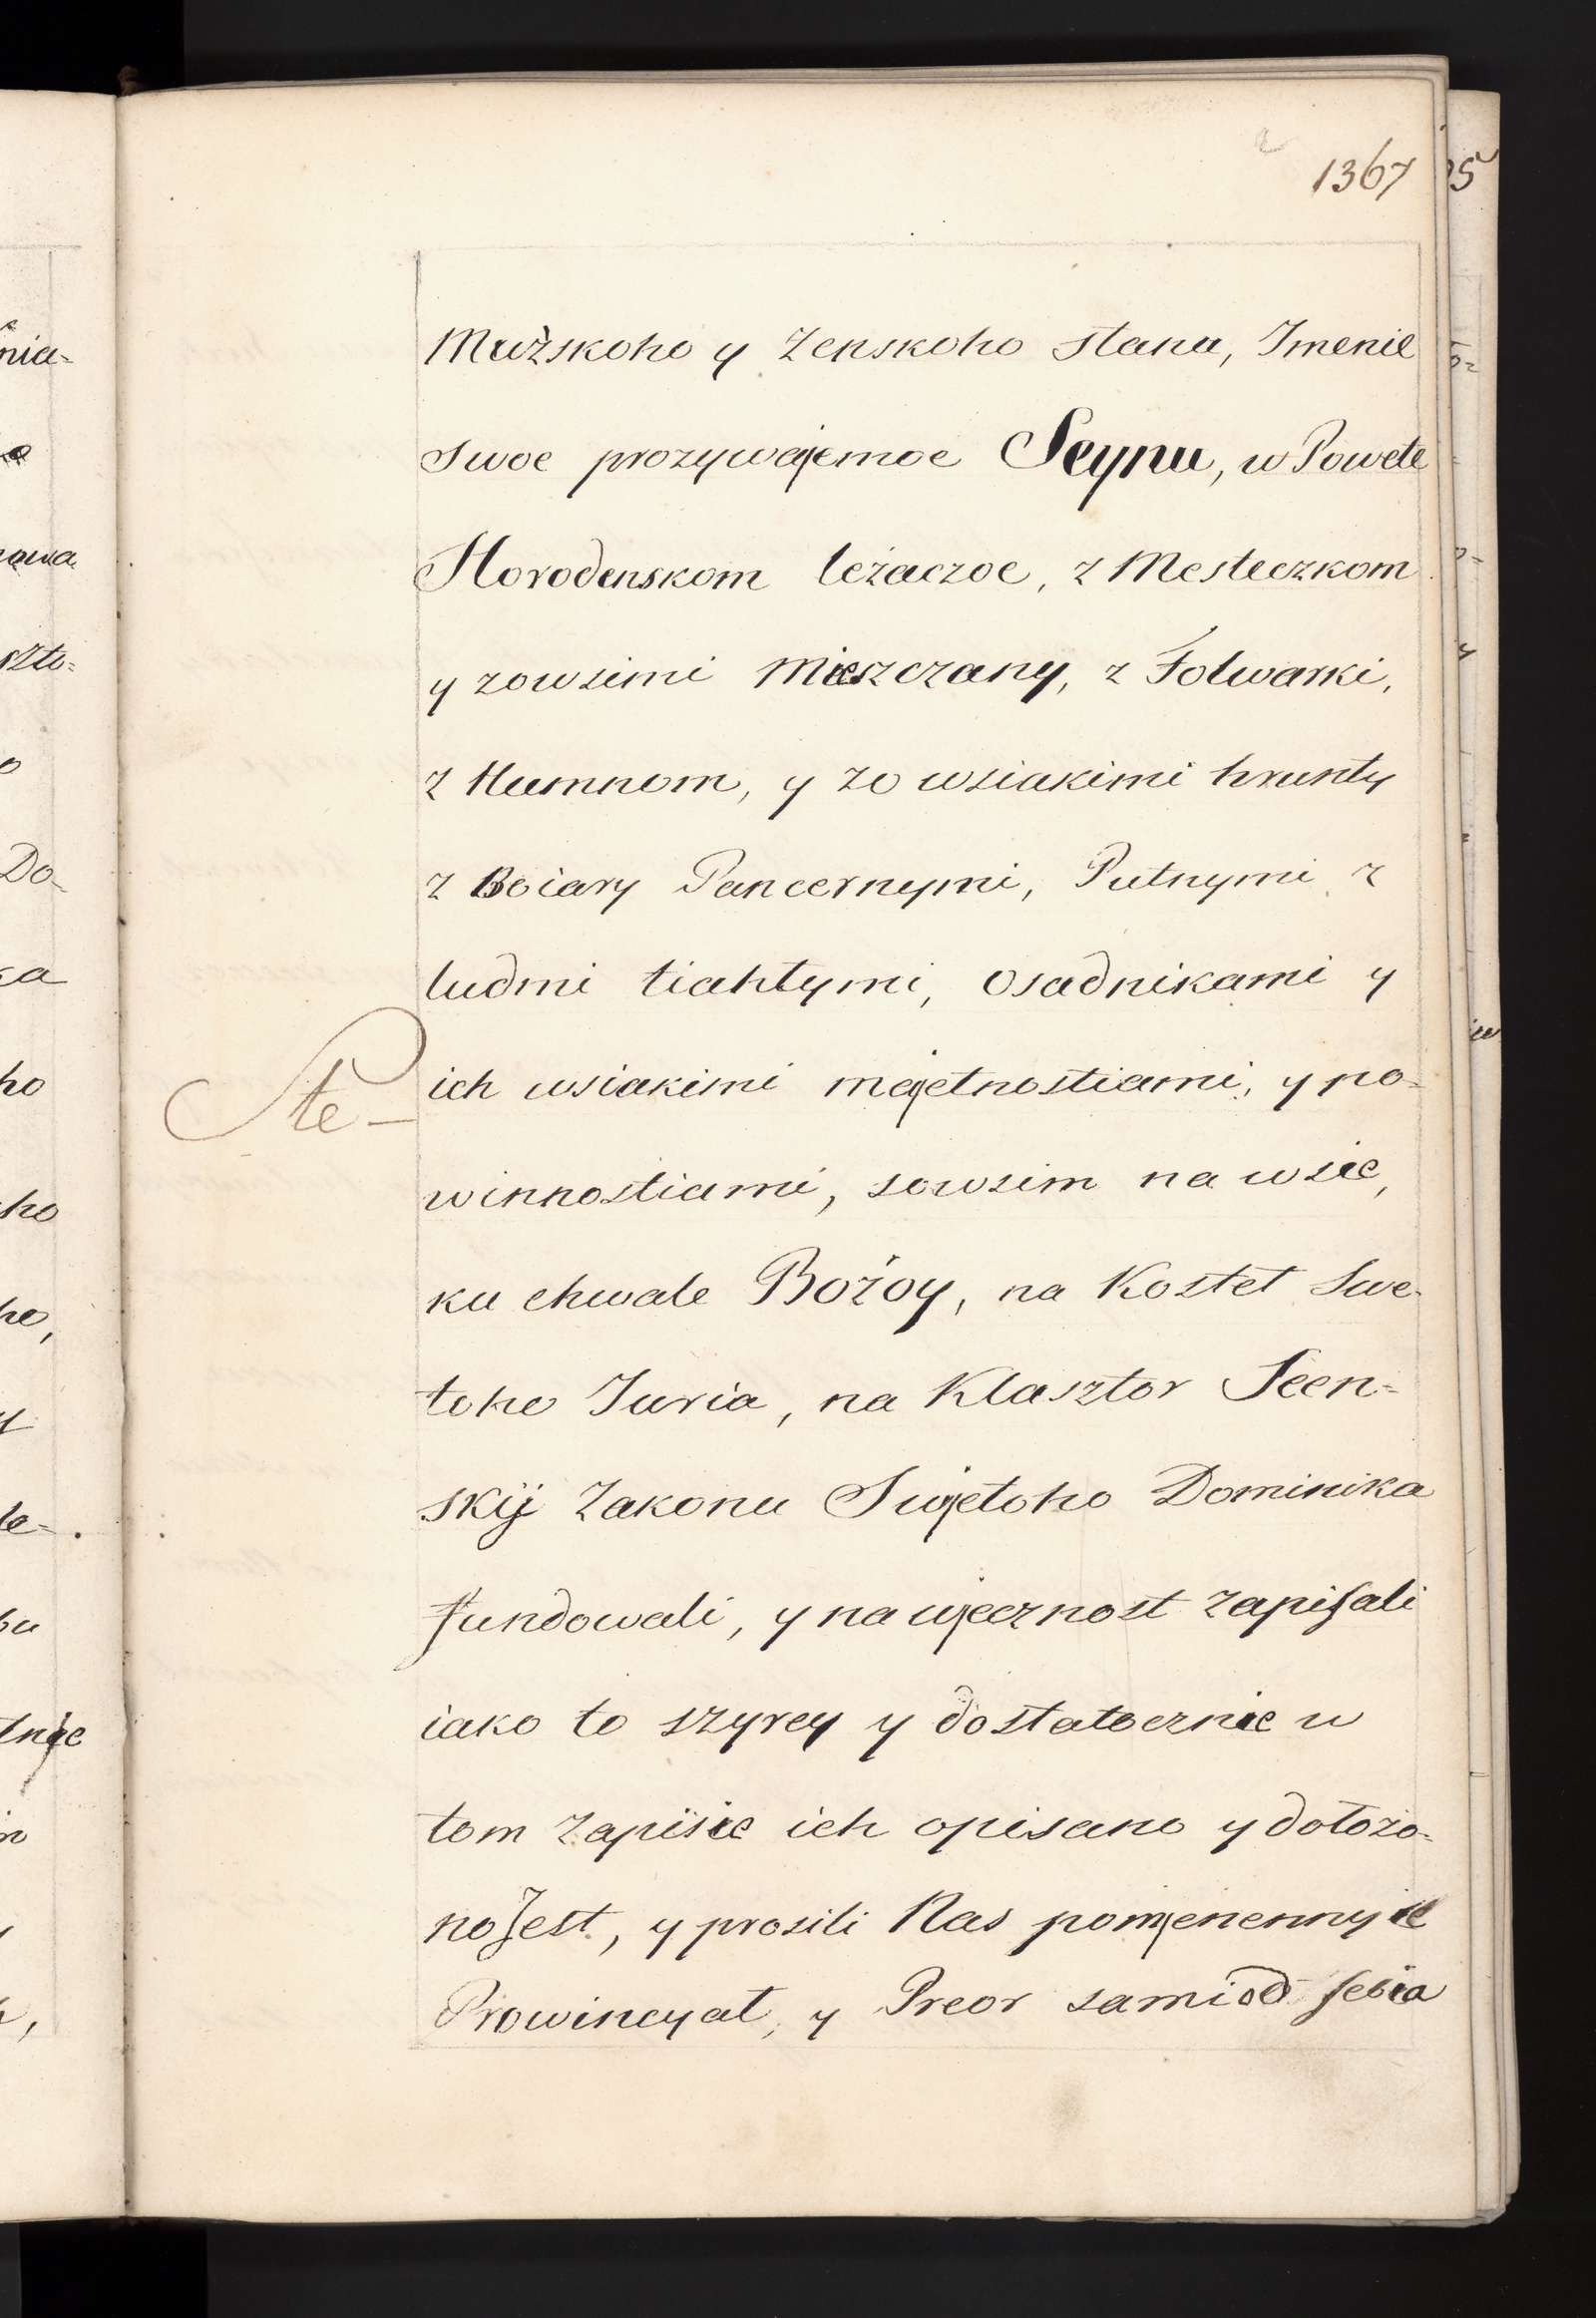 1367
Mużskoho y Zenskoho stanu, Imenie
swoe prozywajemoe Seynu, w Powete
Horodenskom leżaczoe, z Mesteczkom
y zowsimi Mieszczany, z Folwarki,
z Humnom, y zo wsiakimi hrunty
z Boiary Pancernymi, Putnymi, z
ludmi tiahłymi, Osadnikami y
ich wsiakimi majetnostiami, y po-
winnostiami, sowsim na wsie,
ku chwale Bożoy, na Kosteł Swe-
toho Juria, na Klasztor Seen=
skij Zakonu Swjetoho Dominika
fundowali, y na wjecznost zapisali
iako to szyrey y dostatecznie w
tom zapisie ich opisano y dołożo-
no Jest, y prosili Nas pomjenennyie
Prowincyał, y Preor sami od sebia
Ste-